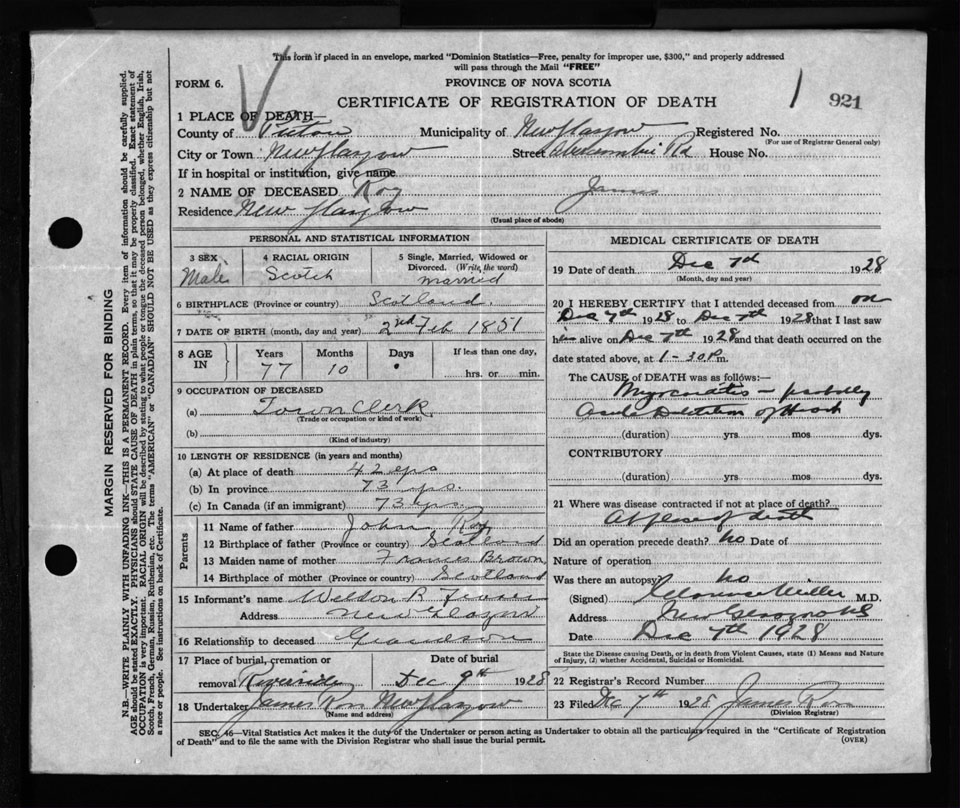 This form if placed in an envelope, marked "Dominion Statistics—Free, penalty for improper use, $300," and properly addressed
will pass through the Mail "FREE"
FORM 6.
PROVINCE OF NOVA SCOTIA
CERTIFICATE OF REGISTRATION OF DEATH
1 921
1 PLACE OF DEATH—
County of Pictou Municipality of New Glasgow Registered No.
(For use of Registrar General only)
City or Town New Glasgow Street Abercrombie Rd House No.
If in hospital or institution, give name
2 NAME OF DECEASED Roy James
Residence New Glasgow
(Usual place of abode)
PERSONAL AND STATISTICAL INFORMATION
3 SEX Male
4 RACIAL ORIGIN Scotch
5 Single, Married, Widowed or Divorced. (Write the word) Married
6 BIRTHPLACE (Province or country) Scotland.
7 DATE OF BIRTH (month, day and year) 2nd Feb 1851
8 AGE IN Years 77 Months 10 Days If less than one day, hrs. or min.
9 OCCUPATION OF DECEASED
(a) Town Clerk
(Trade or occupation or kind of work)
(b)
(Kind of industry)
10 LENGTH OF RESIDENCE (in years and months)
(a) At place of death 42 yrs
(b) In province 73 yrs.
(c) In Canada (if an immigrant) 73 yrs.
Parents
11 Name of father John Roy
12 Birthplace of father (Province or country) Scotland
13 Maiden name of mother Frances Brown
14 Birthplace of mother (Province or country) Scotland
15 Informant's name Welson B.
Address New Glasgow
16 Relationship to deceased Grandson
17 Place of burial, cremation or removal Riverside
Date of burial Dec 9th 1928
18 Undertaker James Ross New Glasgow
(Name and address)
MEDICAL CERTIFICATE OF DEATH
19 Date of death Dec 7th 1928
(Month, day and year)
20 I HEREBY CERTIFY that I attended deceased from on
Dec 7th 1928 to Dec 7th 1928 that I last saw
him alive on Dec 7th 1928 and that death occurred on the
date stated above, at 1-30 P.m.
The CAUSE of DEATH was as follows:
Myocarditis — probably
Acute Dilatation of Heart
(duration) yrs mos dys.
CONTRIBUTORY
(duration) yrs mos dys.
21 Where was disease contracted if not at place of death?
At place of death
Did an operation precede death? no Date of
Nature of operation
Was there an autopsy? no
(Signed) Clarence Miller M.D.
Address New Glasgow NS
Date Dec 7th 1928
State the Disease causing Death, or in death from Violent Causes, state (1) Means and Nature
of Injury, (2) whether Accidental, Suicidal or Homicidal.
22 Registrar's Record Number
23 Filed Dec 7th 1928 James Ross
(Division Registrar)
SEC. 46—Vital Statistics Act makes it the duty of the Undertaker or person acting as Undertaker to obtain all the particulars required in the "Certificate of Registration
of Death" and to file the same with the Division Registrar who shall issue the burial permit.
(OVER)
MARGIN RESERVED FOR BINDING
N.B.—WRITE PLAINLY WITH UNFADING INK—THIS IS A PERMANENT RECORD. Every item of information should be carefully supplied.
AGE should be stated EXACTLY. PHYSICIANS should STATE CAUSE OF DEATH in plain terms, so that it may be properly classified. Exact statement of
OCCUPATION is very important. RACIAL ORIGIN will be described by stating to what people or tongue the deceased person belonged, whether English, Irish,
Scotch, French, German, Russian, Ruthenian, etc. The terms "AMERICAN" or "CANADIAN" SHOULD NOT BE USED as they express citizenship but not
a race or people. See instructions on back of Certificate.